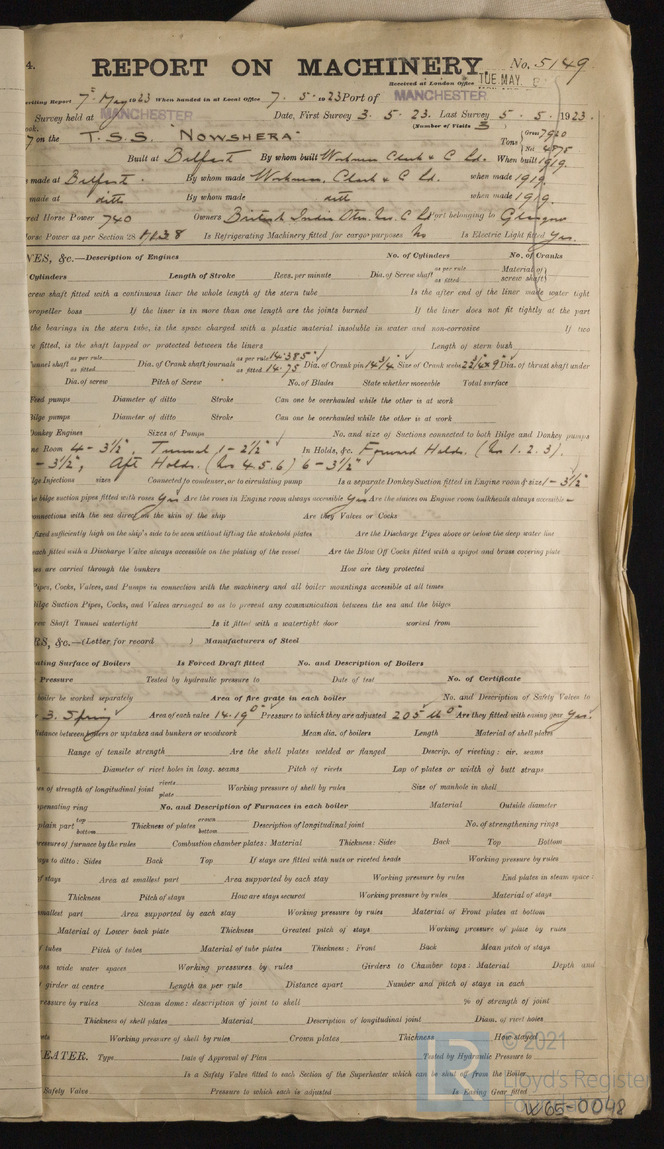 4. REPORT ON MACHINERY. No. 5149
Received at London Office TUE. MAY
writing Report 7th May 1923 When handed in at Local Office 7. 5. 1923 Port of MANCHESTER
Survey held at MANCHESTER Date, First Survey 3. 5. 23. Last Survey 5. 5. 1923.
(Number of Visits 3)
on the T.S.S. "NOWSHERA" Tons { Gross 7920 Net 4575
Built at Belfast By whom built Workman, Clark & C Ld. When built 1919.
made at Belfast. By whom made Workman, Clark & C Ld. when made 1919.
made at ditto By whom made ditto when made 1919.
Horse Power 740 Owners British India Stm. Nav. C Ld Port belonging to Glasgow
Horse Power as per Section 28 1138 Is Refrigerating Machinery fitted for cargo purposes No Is Electric Light fitted Yes.
NES, &c.—Description of Engines No. of Cylinders No. of Cranks
Cylinders Length of Stroke Revs. per minute Dia. of Screw shaft as per rule as fitted Material of screw shaft
crew shaft fitted with a continuous liner the whole length of the stern tube Is the after end of the liner made water tight
propeller boss If the liner is in more than one length are the joints burned If the liner does not fit tightly at the part
the bearings in the stern tube, is the space charged with a plastic material insoluble in water and non-corrosive If two
are fitted, is the shaft lapped or protected between the liners Length of stern bush
Tunnel shaft as per rule as fitted Dia. of Crank shaft journals as per rule 14.385" as fitted 14.75 Dia. of Crank pin 14 3/4" Size of Crank webs 22 3/4 x 9" Dia. of thrust shaft under
Dia. of screw Pitch of Screw No. of Blades State whether moveable Total surface
Feed pumps Diameter of ditto Stroke Can one be overhauled while the other is at work
Bilge pumps Diameter of ditto Stroke Can one be overhauled while the other is at work
Donkey Engines Sizes of Pumps No. and size of Suctions connected to both Bilge and Donkey pumps
ne Room 4 - 3½", Tunnel 1 - 2½" In Holds, &c. Forward Holds. (No 1. 2. 3).
- 3½", Aft Holds. (No 4. 5. 6) 6 - 3½"
lge Injections sizes Connected to condenser, or to circulating pump Is a separate Donkey Suction fitted in Engine room & size 1 - 3½"
he bilge suction pipes fitted with roses Yes Are the roses in Engine room always accessible Yes Are the sluices on Engine room bulkheads always accessible -
connections with the sea direct on the skin of the ship Are they Valves or Cocks
fixed sufficiently high on the ship's side to be seen without lifting the stokehold plates Are the Discharge Pipes above or below the deep water line
each fitted with a Discharge Valve always accessible on the plating of the vessel Are the Blow Off Cocks fitted with a spigot and brass covering plate
es are carried through the bunkers How are they protected
Pipes, Cocks, Valves, and Pumps in connection with the machinery and all boiler mountings accessible at all times
Bilge Suction Pipes, Cocks, and Valves arranged so as to prevent any communication between the sea and the bilges
rew Shaft Tunnel watertight Is it fitted with a watertight door worked from
RS, &c.—(Letter for record ) Manufacturers of Steel
ating Surface of Boilers Is Forced Draft fitted No. and Description of Boilers
Pressure Tested by hydraulic pressure to Date of test No. of Certificate
boiler be worked separately Area of fire grate in each boiler No. and Description of Safety Valves to
- 3. Spring Area of each valve 14.19□" Pressure to which they are adjusted 205 lb□" Are they fitted with easing gear Yes.
distance between boilers or uptakes and bunkers or woodwork Mean dia. of boilers Length Material of shell plates
Range of tensile strength Are the shell plates welded or flanged Descrip. of riveting: cir. seams
s Diameter of rivet holes in long. seams Pitch of rivets Lap of plates or width of butt straps
es of strength of longitudinal joint rivets plate Working pressure of shell by rules Size of manhole in shell
pensating ring No. and Description of Furnaces in each boiler Material Outside diameter
plain part top bottom Thickness of plates crown bottom Description of longitudinal joint No. of strengthening rings
pressure of furnace by the rules Combustion chamber plates: Material Thickness: Sides Back Top Bottom
ays to ditto: Sides Back Top If stays are fitted with nuts or riveted heads Working pressure by rules
of stays Area at smallest part Area supported by each stay Working pressure by rules End plates in steam space:
Thickness Pitch of stays How are stays secured Working pressure by rules Material of stays
smallest part Area supported by each stay Working pressure by rules Material of Front plates at bottom
Material of Lower back plate Thickness Greatest pitch of stays Working pressure of plate by rules
f tubes Pitch of tubes Material of tube plates Thickness: Front Back Mean pitch of stays
oss wide water spaces Working pressures by rules Girders to Chamber tops: Material Depth and
girder at centre Length as per rule Distance apart Number and pitch of stays in each
ressure by rules Steam dome: description of joint to shell % of strength of joint
Thickness of shell plates Material Description of longitudinal joint Diam. of rivet holes
ets Working pressure of shell by rules Crown plates Thickness How stayed
EATER. Type Date of Approval of Plan Tested by Hydraulic Pressure to
Is a Safety Valve fitted to each Section of the Superheater which can be shut off from the Boiler
Safety Valve Pressure to which each is adjusted Is Easing Gear fitted
© 2021
Lloyd's Register
Foundation
W65-0048